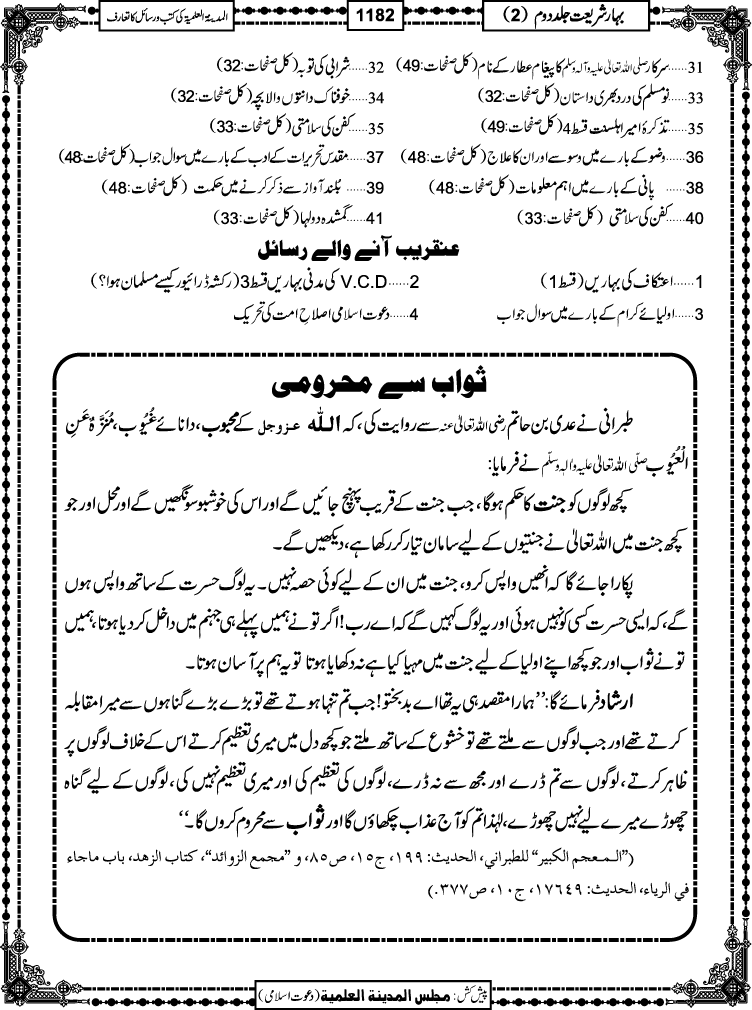 بہار شریعت جلد دوم (2) 1182 المدینۃ العلمیۃ کی کتب و رسائل کا تعارف
31......سرکار صلی اللہ تعالیٰ علیہ واٰلہ وسلم کا پیغام عطار کے نام (کل صفحات:49) 32......شرابی کی توبہ (کل صفحات:32)
33......نو مسلم کی درد بھری داستان (کل صفحات:32) 34......خوفناک دانتوں والا بچہ (کل صفحات:32)
35......تذکرۂ امیر اہلسنت قسط 4 (کل صفحات:49) 35......کفن کی سلامتی (کل صفحات:33)
36......وضو کے بارے میں وسوسے اور ان کا علاج (کل صفحات:48) 37......مقدس تحریرات کے ادب کے بارے میں سوال جواب (کل صفحات:48)
38...... پانی کے بارے میں اہم معلومات (کل صفحات:48) 39...... بُلند آواز سے ذکر کرنے میں حکمت (کل صفحات:48)
40......کفن کی سلامتی (کل صفحات:33) 41......گمشدہ دولہا (کل صفحات:33)
عنقریب آنے والے رسائل
1......اعتکاف کی بہاریں (قسط 1) 2......V.C.D کی مدنی بہاریں قسط 3 (رکشہ ڈرائیور کیسے مسلمان ہوا؟)
3......اولیائے کرام کے بارے میں سوال جواب 4......دعوت اسلامی اصلاحِ امت کی تحریک
ثواب سے محرومی
طبرانی نے عدی بن حاتم رضی اللہ تعالیٰ عنہ سے روایت کی، کہ اللہ عزوجل کے محبوب، دانائے غُیُوب، مُنَزَّہٌ عَنِ
الْعُیُوب صلّی اللہ تعالیٰ علیہ واٰلہٖ وسلّم نے فرمایا:
کچھ لوگوں کو جنت کا حکم ہوگا، جب جنت کے قریب پہنچ جائیں گے اور اس کی خوشبو سونگھیں گے اور محل اور جو
کچھ جنت میں اللہ تعالیٰ نے جنتیوں کے لیے سامان تیار کر رکھا ہے، دیکھیں گے۔
پکارا جائے گا کہ انھیں واپس کرو، جنت میں ان کے لیے کوئی حصہ نہیں۔ یہ لوگ حسرت کے ساتھ واپس ہوں
گے، کہ ایسی حسرت کسی کو نہیں ہوئی اور یہ لوگ کہیں گے کہ اے رب! اگر تو نے ہمیں پہلے ہی جہنم میں داخل کر دیا ہوتا، ہمیں
تو نے ثواب اور جو کچھ اپنے اولیا کے لیے جنت میں مہیا کیا ہے نہ دکھایا ہوتا تو یہ ہم پر آسان ہوتا۔
ارشاد فرمائے گا: ’’ہمارا مقصد ہی یہ تھا اے بدبختو! جب تم تنہا ہوتے تھے تو بڑے بڑے گناہوں سے میرا مقابلہ
کرتے تھے اور جب لوگوں سے ملتے تھے تو خشوع کے ساتھ ملتے جو کچھ دل میں میری تعظیم کرتے اس کے خلاف لوگوں پر
ظاہر کرتے، لوگوں سے تم ڈرے اور مجھ سے نہ ڈرے، لوگوں کی تعظیم کی اور میری تعظیم نہیں کی، لوگوں کے لیے گناہ
چھوڑے میرے لیے نہیں چھوڑے، لہٰذا تم کو آج عذاب چکھاؤں گا اور ثواب سے محروم کروں گا۔‘‘
(’’المعجم الکبیر‘‘ للطبراني، الحدیث: ۱۹۹، ج۱۵، ص۸۵، و ’’مجمع الزوائد‘‘، کتاب الزهد، باب ماجاء
في الریاء، الحدیث: ۱۷۶٤۹، ج۱۰، ص۳۷۷.)
پیش کش: مجلس المدینة العلمیة (دعوت اسلامی)